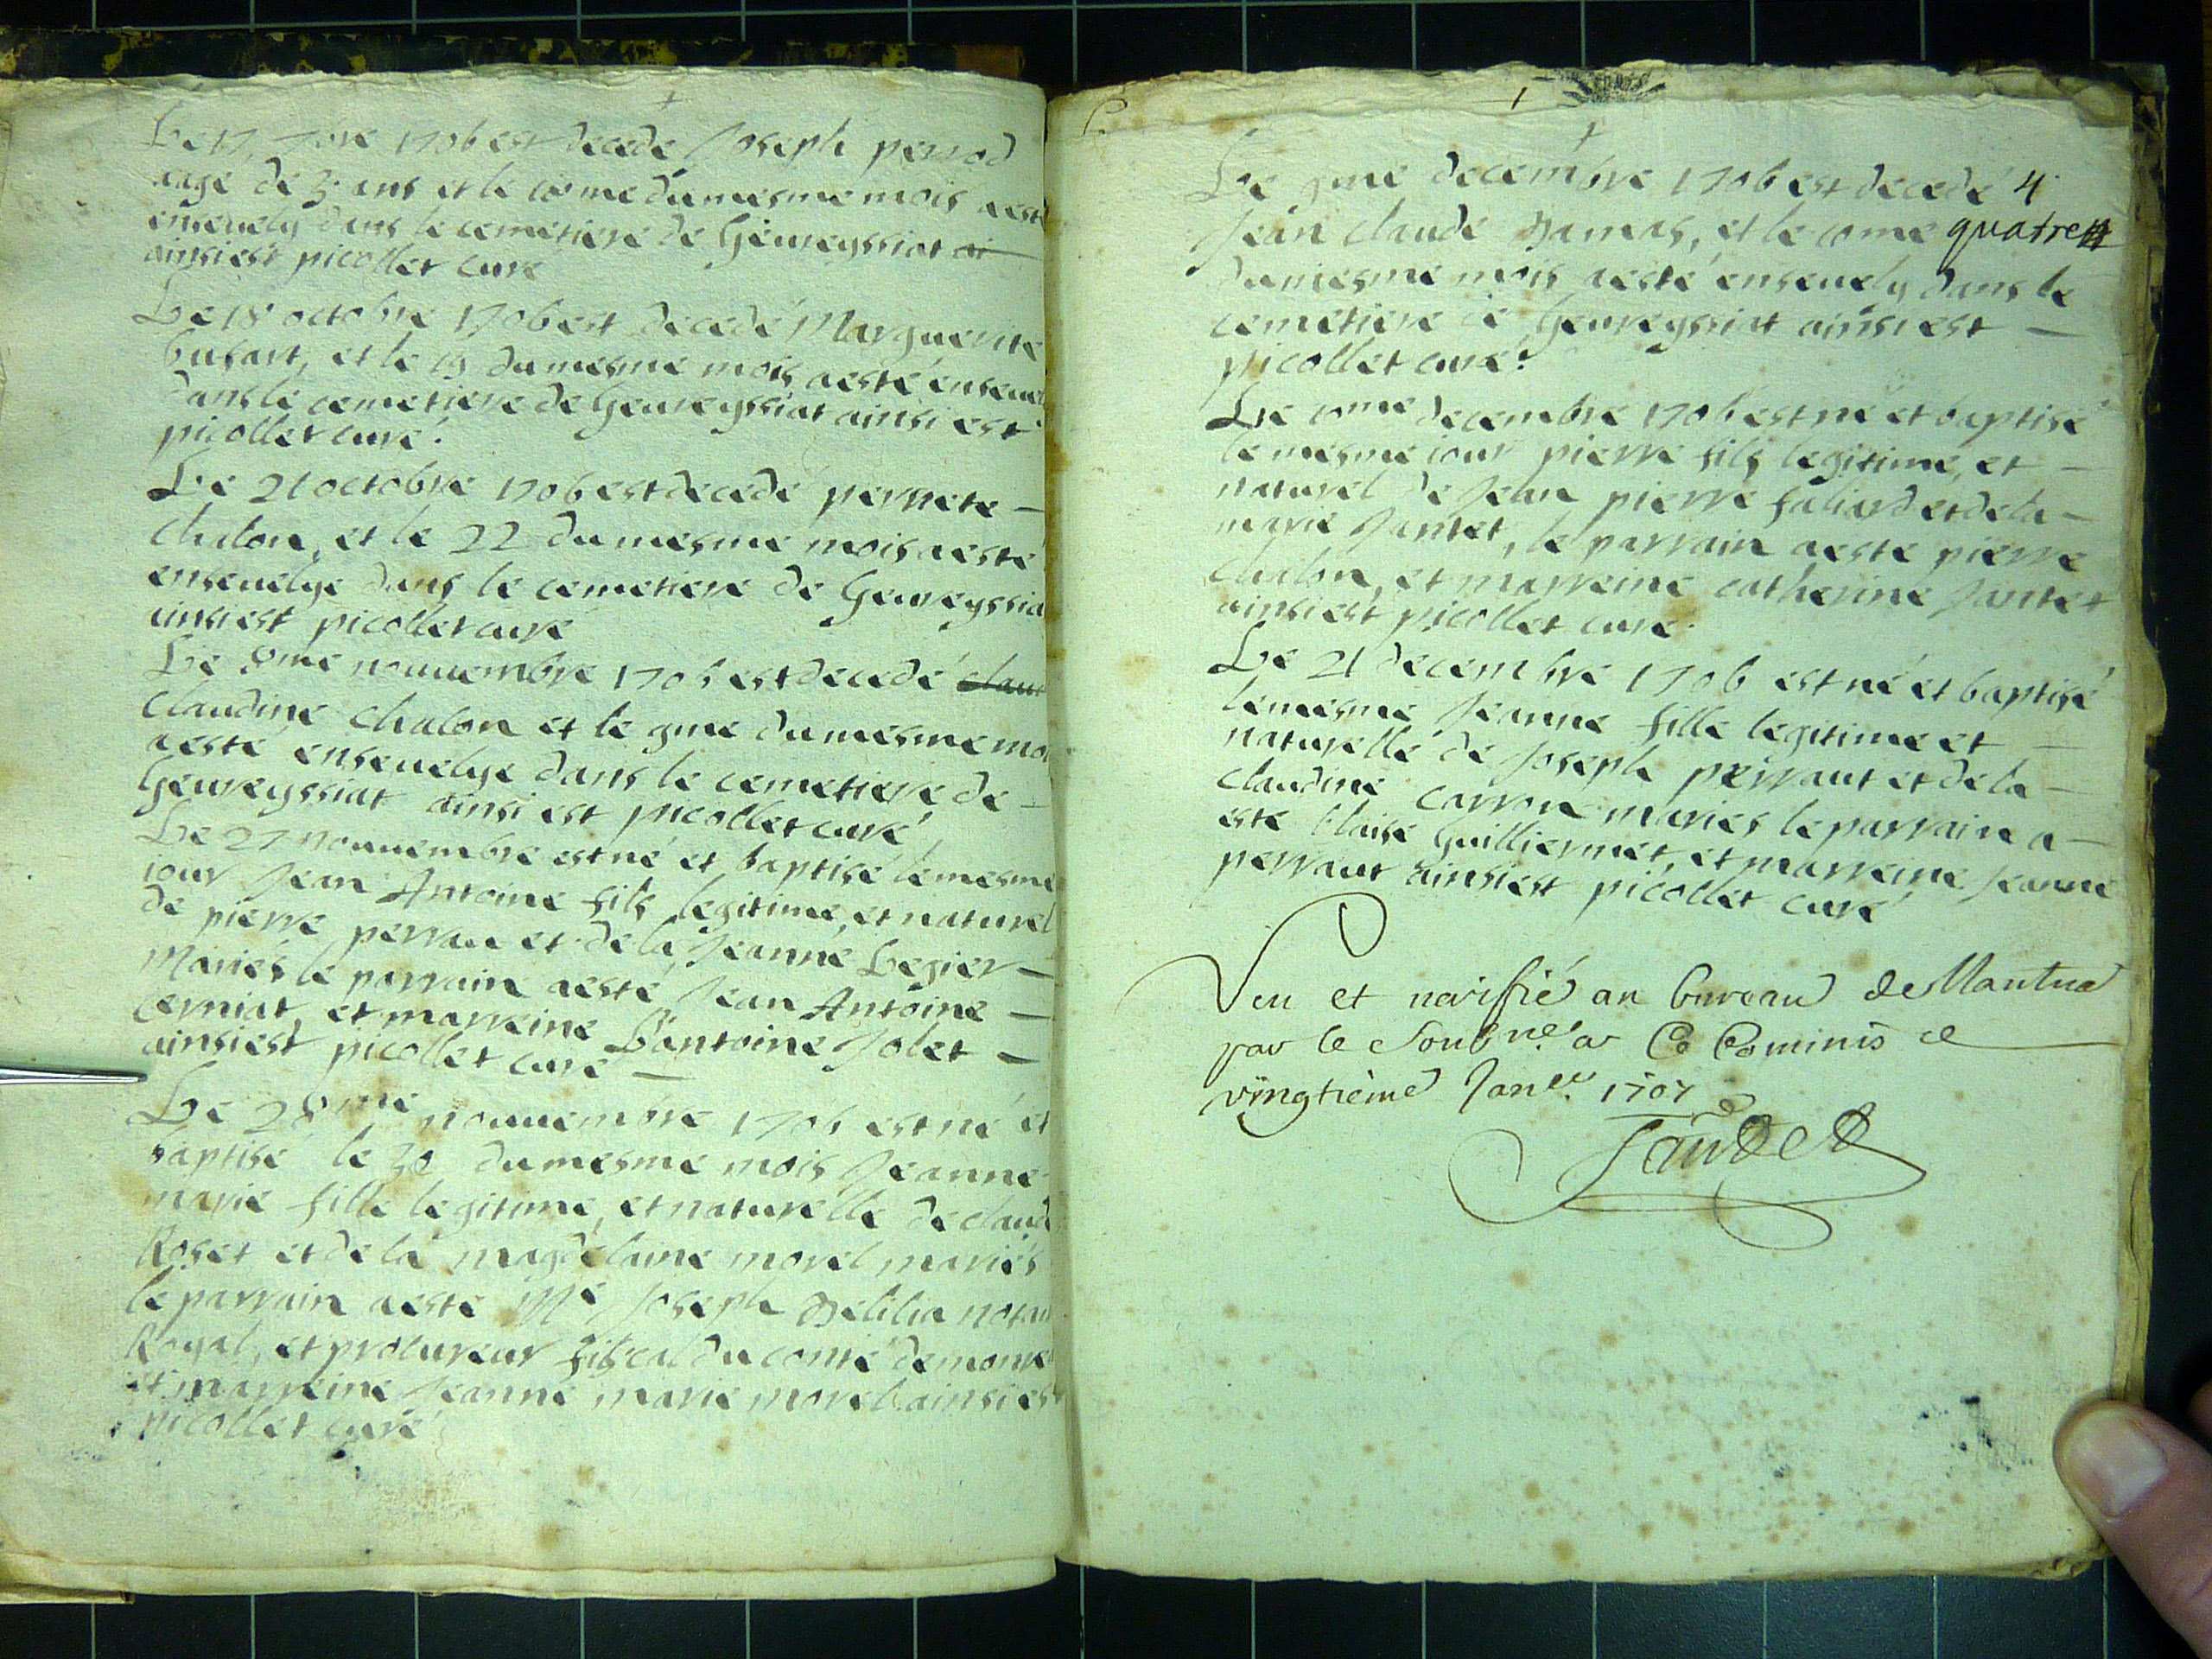 Le 17 7bre 1706 est decede Joseph perrod
aagé de 3 ans et le 18me du mesme mois a esté
enseuely dans le cemetiere de Geureyssiat
ainsi est picollet curé
Le 18 octobre 1706 est decedé Marguerite
busart, et le 19 du mesme mois a esté enseuel
dans le cemetiere de Geureyssiat ainsi est
picollet curé.
Le 21 octobre 1706 est decedé pernete
chalon, et le 22 du mesme mois a esté
enseuelye dans le cemetiere de Geureyssia
ainsi est picollet curé
Le 8me nouuembre 1706 est decedé clau
Claudine chalon et le 9me du mesme moi
a esté enseuelye dans le cemetiere de
Geureyssiat ainsi est picollet curé
Le 27 nouuembre est né et baptisé le mesme
iour Jean Antoine fils legitime, et naturel
de pierre perrau et de la Jeanne Legier
Mariés le parrain a esté Jean Antoine
cerniat, et marreine L'antoine Jolet
ainsi est picollet curé
Le 28me nouuembre 1706 est né et
baptisé le 30 du mesme mois Jeanne
marie fille legitime, et naturelle de claude
Roset et de la magdelaine morel mariés
le parrain a esté Me Joseph Delilia notai
Royal, et procureur fiscal du conté de monre
et marreine Jeanne marie morel ainsi est
picollet curé
Le 9me decembre 1706 est decedé 4
Jean claude Damas, et le 10me quatre
du mesme mois a esté enseuely dans le
cemetiere de Geureyssiat ainsi est
picollet curé.
Le 10me decembre 1706 est né et baptisé
le mesme iour pierre fils legitime, et
naturel de Jean pierre faliard et de la
marie Jantet, le parrain a esté pierre
chalon, et marreine catherine Jantet
ainsi est picollet curé.
Le 21 decembre 1706 est né et baptisé
le mesme Jeanne fille legitime et
naturelle de Joseph perraut et de la
claudine carrone mariés le parrain a
esté blaise Guilliermet, et marreine Jeanne
perraut ainsi est picollet curé
Veu et verifié au bureau de Nantua
par le Soubne ce
vingtième Janer. 1707
Jaudet